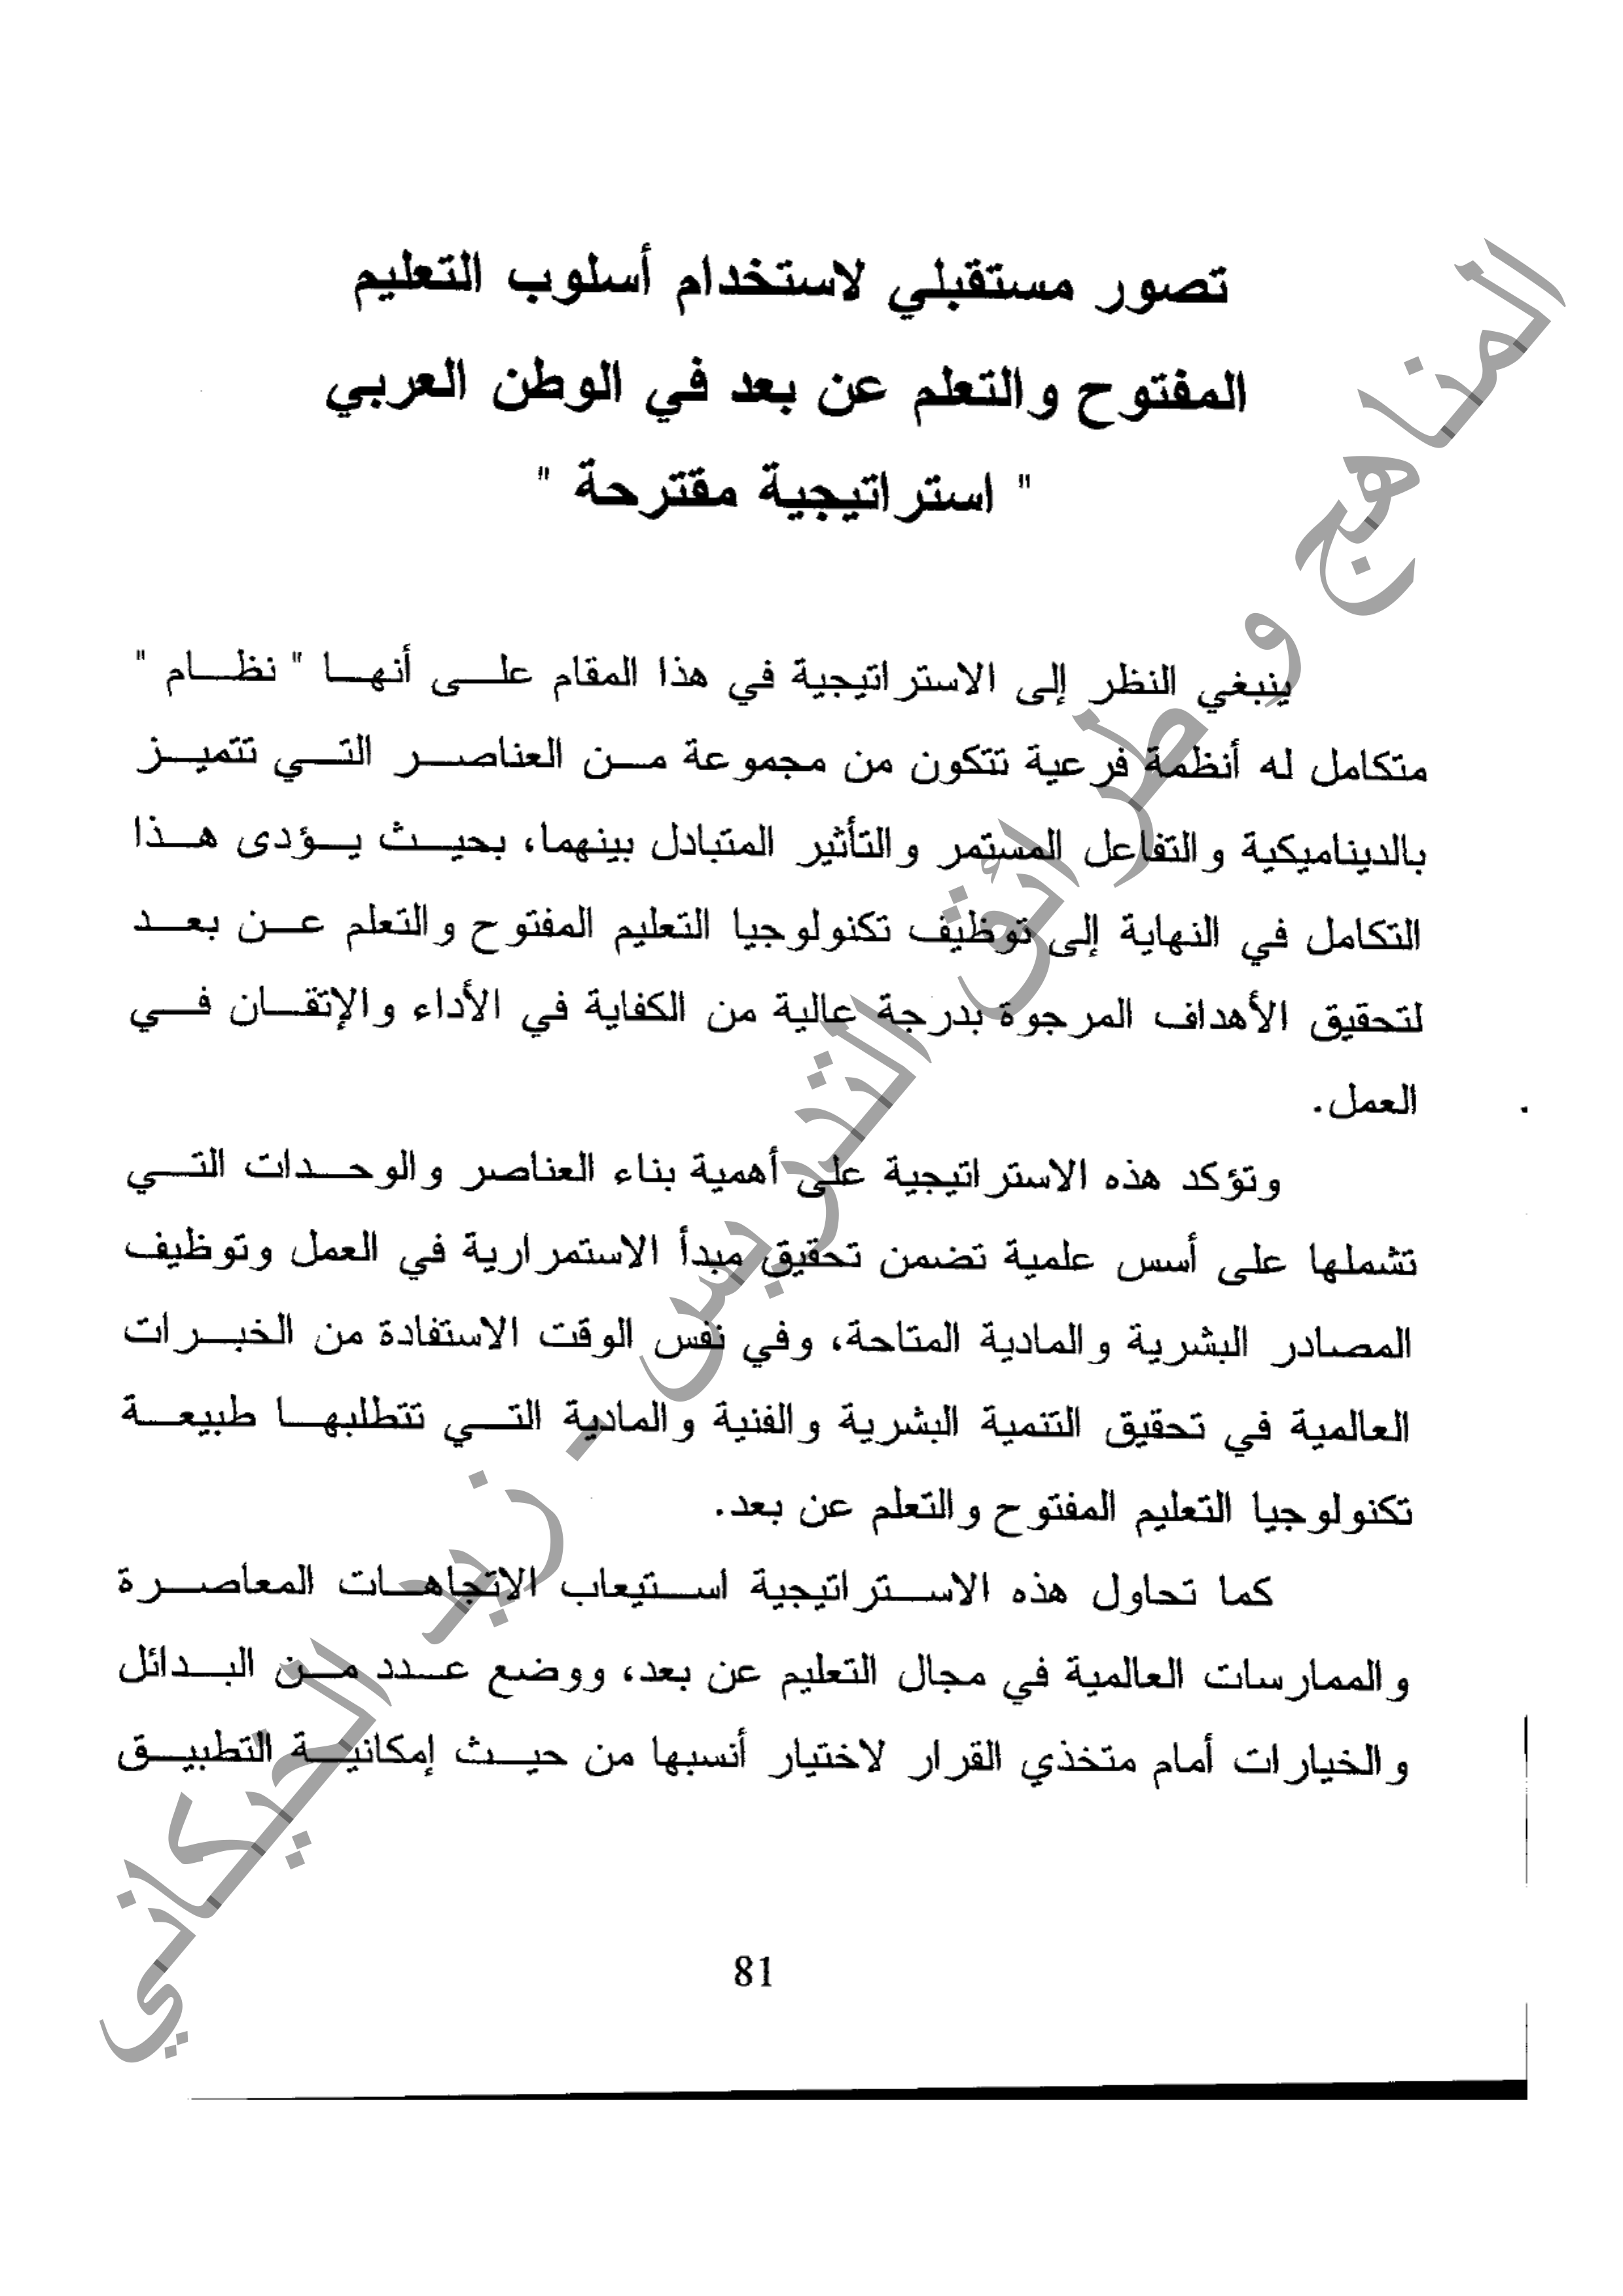 تصور مستقبلي لاستخدام أسلوب التعليم
المفتوح والتعلم عن بعد في الوطن العربي
" استراتيجية مقترحة "
ينبغي النظر إلى الاستراتيجية في هذا المقام على أنها " نظام "
متكامل له أنظمة فرعية تتكون من مجموعة من العناصر التي تتميز
بالديناميكية والتفاعل المستمر والتأثير المتبادل بينهما، بحيث يؤدى هذا
التكامل في النهاية إلى توظيف تكنولوجيا التعليم المفتوح والتعلم عن بعد
لتحقيق الأهداف المرجوة بدرجة عالية من الكفاية في الأداء والإتقان في
العمل.
وتؤكد هذه الاستراتيجية على أهمية بناء العناصر والوحدات التي
تشملها على أسس علمية تضمن تحقيق مبدأ الاستمرارية في العمل وتوظيف
المصادر البشرية والمادية المتاحة، وفي نفس الوقت الاستفادة من الخبرات
العالمية في تحقيق التنمية البشرية والفنية والمادية التي تتطلبها طبيعة
تكنولوجيا التعليم المفتوح والتعلم عن بعد.
كما تحاول هذه الاستراتيجية استيعاب الاتجاهات المعاصرة
والممارسات العالمية في مجال التعليم عن بعد، ووضع عدد من البدائل
والخيارات أمام متخذي القرار لاختيار أنسبها من حيث إمكانية التطبيق
81
المناهج و طرائق التدريس - زيد الخيكاني